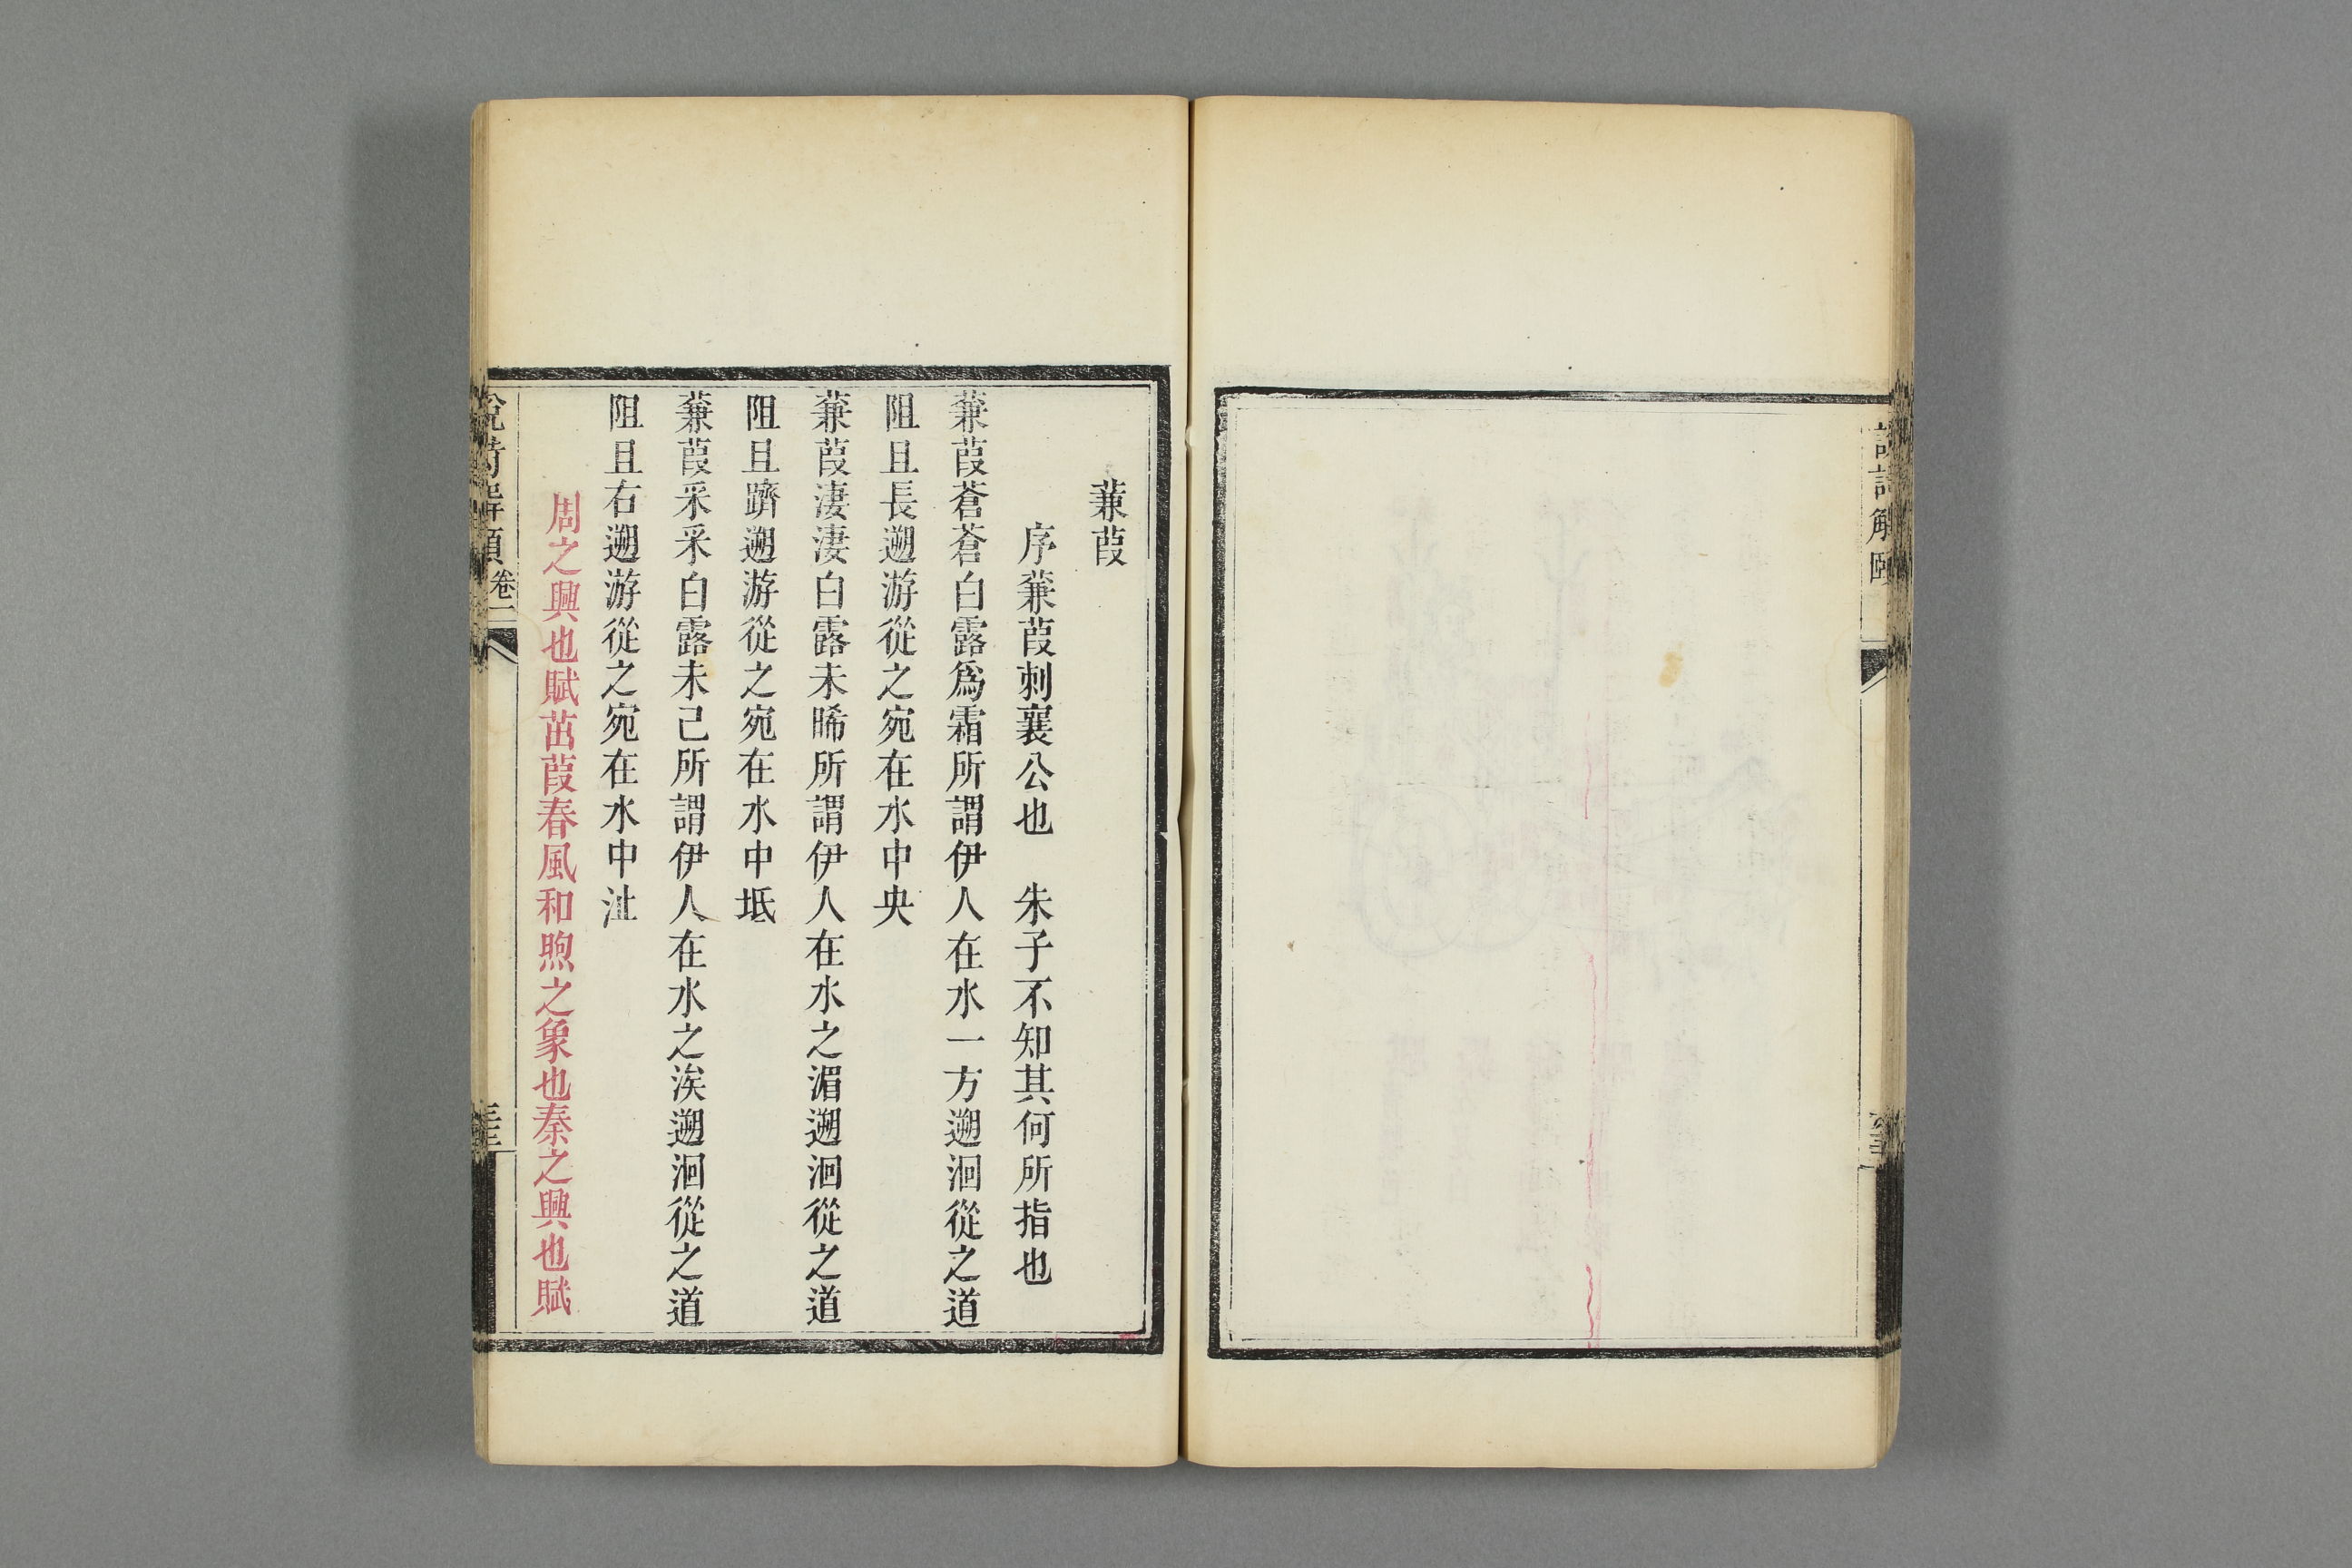 說詩解頤
蒹葭
序蒹葭刺襄公也　朱子不知其何所指也
蒹葭蒼蒼白露爲霜所謂伊人在水一方遡洄從之道
阻且長遡游從之宛在水中央
蒹葭淒淒白露未晞所謂伊人在水之湄遡洄從之道
阻且躋遡游從之宛在水中坻
蒹葭采采白露未已所謂伊人在水之涘遡洄從之道
阻且右遡游從之宛在水中沚
周之興也賦茁葭春風和煦之象也秦之興也賦
說詩解頤 卷一